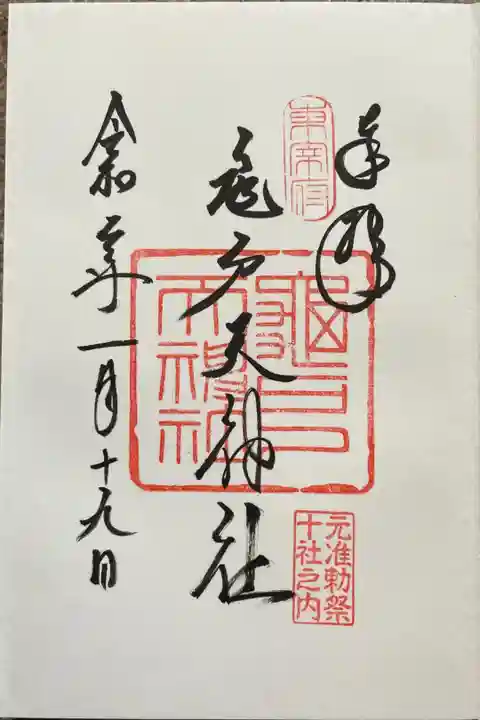 奉拝
東宰府
亀戸天神社
亀戸天神社
元准勅祭
十社之内
令和二年一月十九日